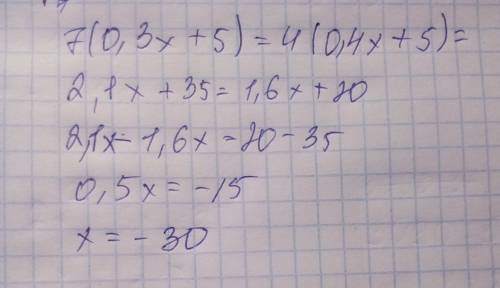 7(0,3x+5)=4(0,4x+5)=
2,1x+35=1,6x+20
2,1x-1,6x=20-35
0,5x=-15
x=-30